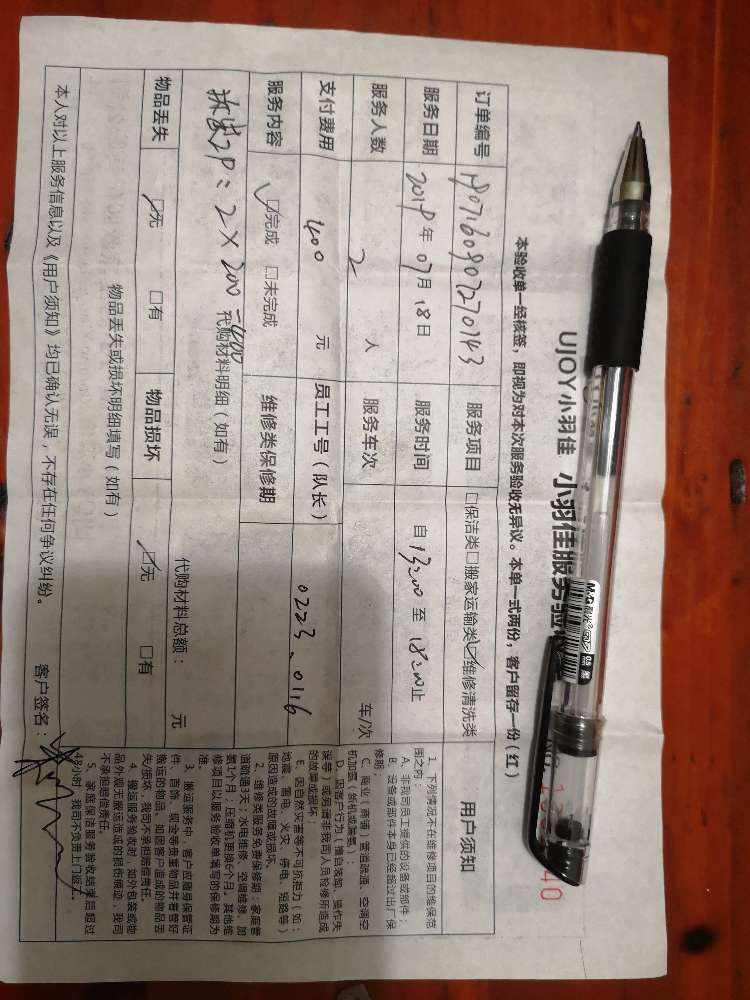 UJOY小羽佳 小羽佳服务验
本验收单一经核签，即视为对本次服务验收无异议。本单一式两份，客户留存一份（红）
订单编号 服务项目 □保洁类□搬家运输类☑维修清洗类 用户须知
服务日期 2019年07月18日 服务时间 自13:00至18:00止
服务人数 2 人 服务车次 车/次
支付费用 400 元 员工工号（队长） 0223、0116
服务内容 ☑完成 □未完成 维修类保修期
2P：2×200=400
代购材料明细（如有） 代购材料总额： 元
物品丢失 ☑无 □有 物品损坏 ☑无 □有
物品丢失或损坏明细填写（如有）
本人对以上服务信息以及《用户须知》均已确认无误，不存在任何争议纠纷。 客户签名：
1、下列情况不在维修项目的维保范
围之内：
A、非我司员工提供的设备或部件；
B、设备或部件本身已经超过出厂保
修期；
C、商业（商铺）管道疏通、空调空
机加氨（新机或漏氨）；
D、因客户行为（擅自装卸、操作失
误等）或另请非我司人员检修所造成
的故障或损坏；
E、因自然灾害等不可抗拒力（如：
地震、雷电、火灾、停电、短路等）
原因造成的故障或损坏。
2、维修类服务免费保修期：家庭管
道疏通3天；水电维修、空调维修、加
氨1个月；压缩机更换6个月，其他维
修项目以服务验收单填写的保修期为
准。
3、搬运服务中，客户应随身保管证
件、首饰、现金等贵重物品并看管好
搬运的物品，如因客户造成的物品丢
失/损坏，我司不承担赔偿责任。
4、搬运服务验收时，如外包装或物
品外观无搬运造成的损伤痕迹，我司
不承担赔偿责任。
5、家庭保洁服务验收结束后超过
48小时，我司不负责上门返工。
M&G 晨光
0.5 黑
40